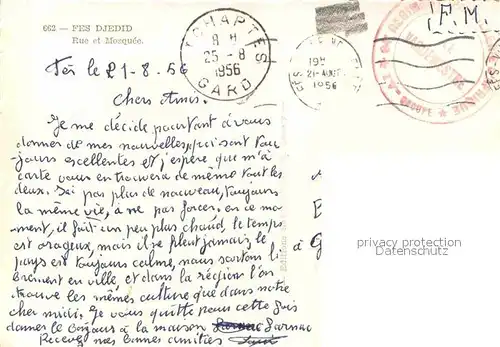 662 — FES DJEDID
Rue et Mosquée.
F.M.
CHAPTES
8 H
25 - 8
1956
GARD
21-AOUT
1956
Fès le 21-8-56
Chers Amis.
Je me décide pourtant à vous
donner de mes nouvelles, qui sont tou-
jours excellentes et j'espère que m'a
carte vous en trouvera de même tout les
deux. Ici pas plus de nouveau, toujours
la même vie, à ne pas forcer. en ce mo-
ment, il fait un peu plus chaud, le temps
est orageux, mais il ne pleut jamais, le
pays est toujours calme, nous sortons li-
brement en ville, et dans la région l'on
trouve les mêmes culture que dans notre
cher midi. Je vous quitte pour cette fois
donner le bonjour à la maison Larnac
Recevez mes bonnes amitiés
privacy protection
Datenschutz